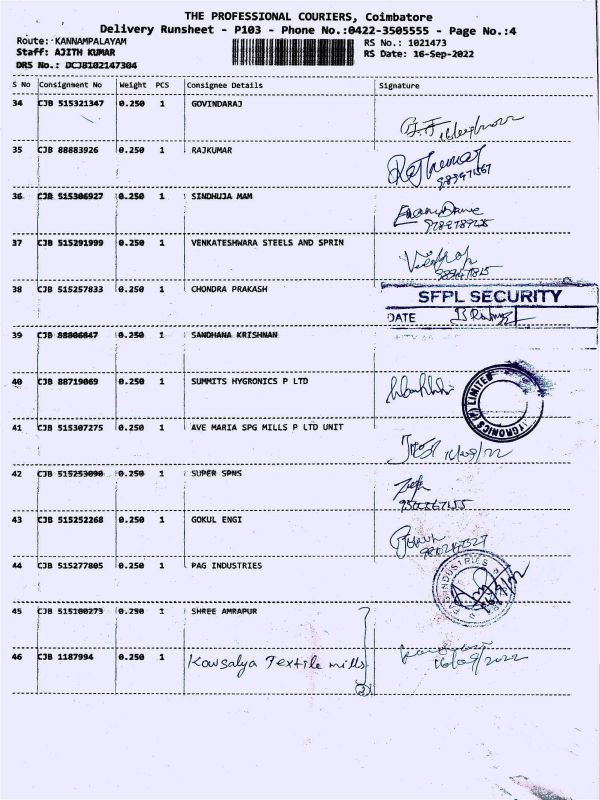 THE PROFESSIONAL COURIERS, Coimbatore
Delivery Runsheet - P103 - Phone No.:0422-3505555 - Page No.:4
Route: KANNAMPALAYAM RS No.: 1021473
Staff: AJITH KUMAR RS Date: 16-Sep-2022
DRS No.: DCJB102147304
S No Consignment No Weight PCS Consignee Details Signature
34 CJB 515321347 0.250 1 GOVINDARAJ
35 CJB 88883926 0.250 1 RAJKUMAR
36 CJB 515306927 0.250 1 SINDHUJA MAM
37 CJB 515291999 0.250 1 VENKATESHWARA STEELS AND SPRIN
38 CJB 515257833 0.250 1 CHONDRA PRAKASH
SFPL SECURITY
DATE
39 CJB 88806847 0.250 1 SANDHANA KRISHNAN
40 CJB 88719069 0.250 1 SUMMITS HYGRONICS P LTD
(P) LIMITED
41 CJB 515307275 0.250 1 AVE MARIA SPG MILLS P LTD UNIT
16/09/22
42 CJB 515253090 0.250 1 SUPER SPNS
43 CJB 515252268 0.250 1 GOKUL ENGI
44 CJB 515277805 0.250 1 PAG INDUSTRIES
INDUSTRIES
45 CJB 515100273 0.250 1 SHREE AMRAPUR
46 CJB 1187994 0.250 1 Kowsalya Textile mills
16/09/2022